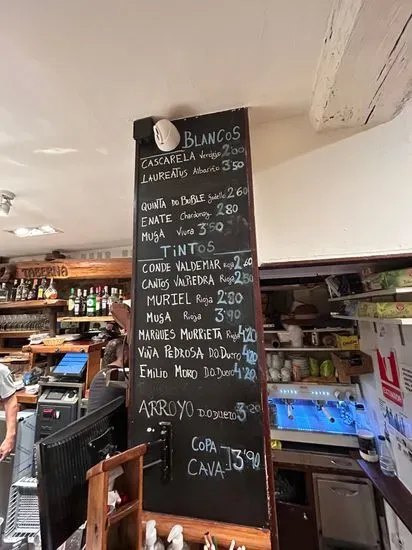 BLANCOS
CASCARELA Verdejo 2'00
LAUREATUS Albariño 3'50
QUINTA DO BUBLE Godello 2'60
ENATE Chardonnay 2'80
MUGA Viura 3'50
TiNTOS
CONDE VALDEMAR Rioja 2'60
CANTOS VALPIEDRA Rioja 2'50
MURIEL Rioja 2'80
MUGA Rioja 3'90
MARQUES MURRIETA Rioja 4'20
VIÑA PEDROSA D.O. Duero 4'20
EMILIO MORO D.O. Duero 4'20
ARROYO D.O. DUERO 3'20
COPA
CAVA 3'90
TABERNA